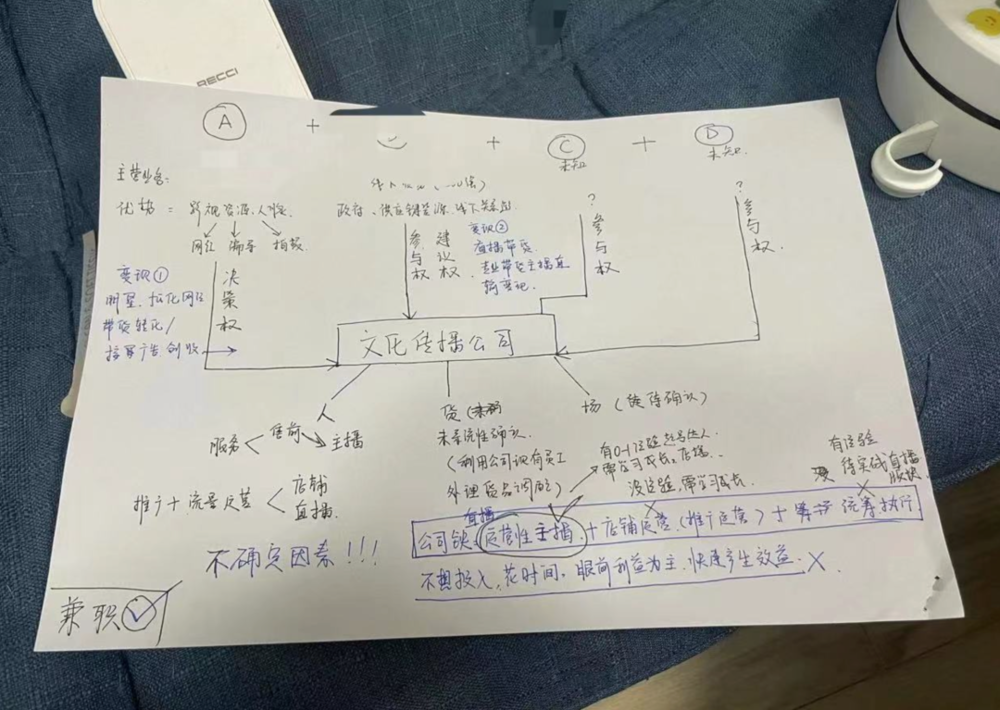 RECCI
A + + C + D
未知 未知
主营业务:
优势 = 影视资源,人脉.
网红 编导 拍摄
政府、供应链资源,线下关系
? ?
决策权
参与权 建议权
参与权
参与权
变现①
明星、孵化网红
带货转化/
接军广告创收
变现②
直播带货
专业带货主播直
文化传播公司
人
服务 售前 主播
推广+流量运营 店铺
直播.
不确定因素!!!
货(未确
未系统性确认.
(利用公司现有员工
外理货品调配)
直播
场(矩阵确认)
有0-1经验起号达人
需学习成长.店播..
没经验,需学习成长
有经验
没 待实碱直播
公司缺:运营性主播 + 店铺运营(推广运营) + 统筹执行
不想投入,花时间,眼前利益为主.快速产生效益. X
兼职